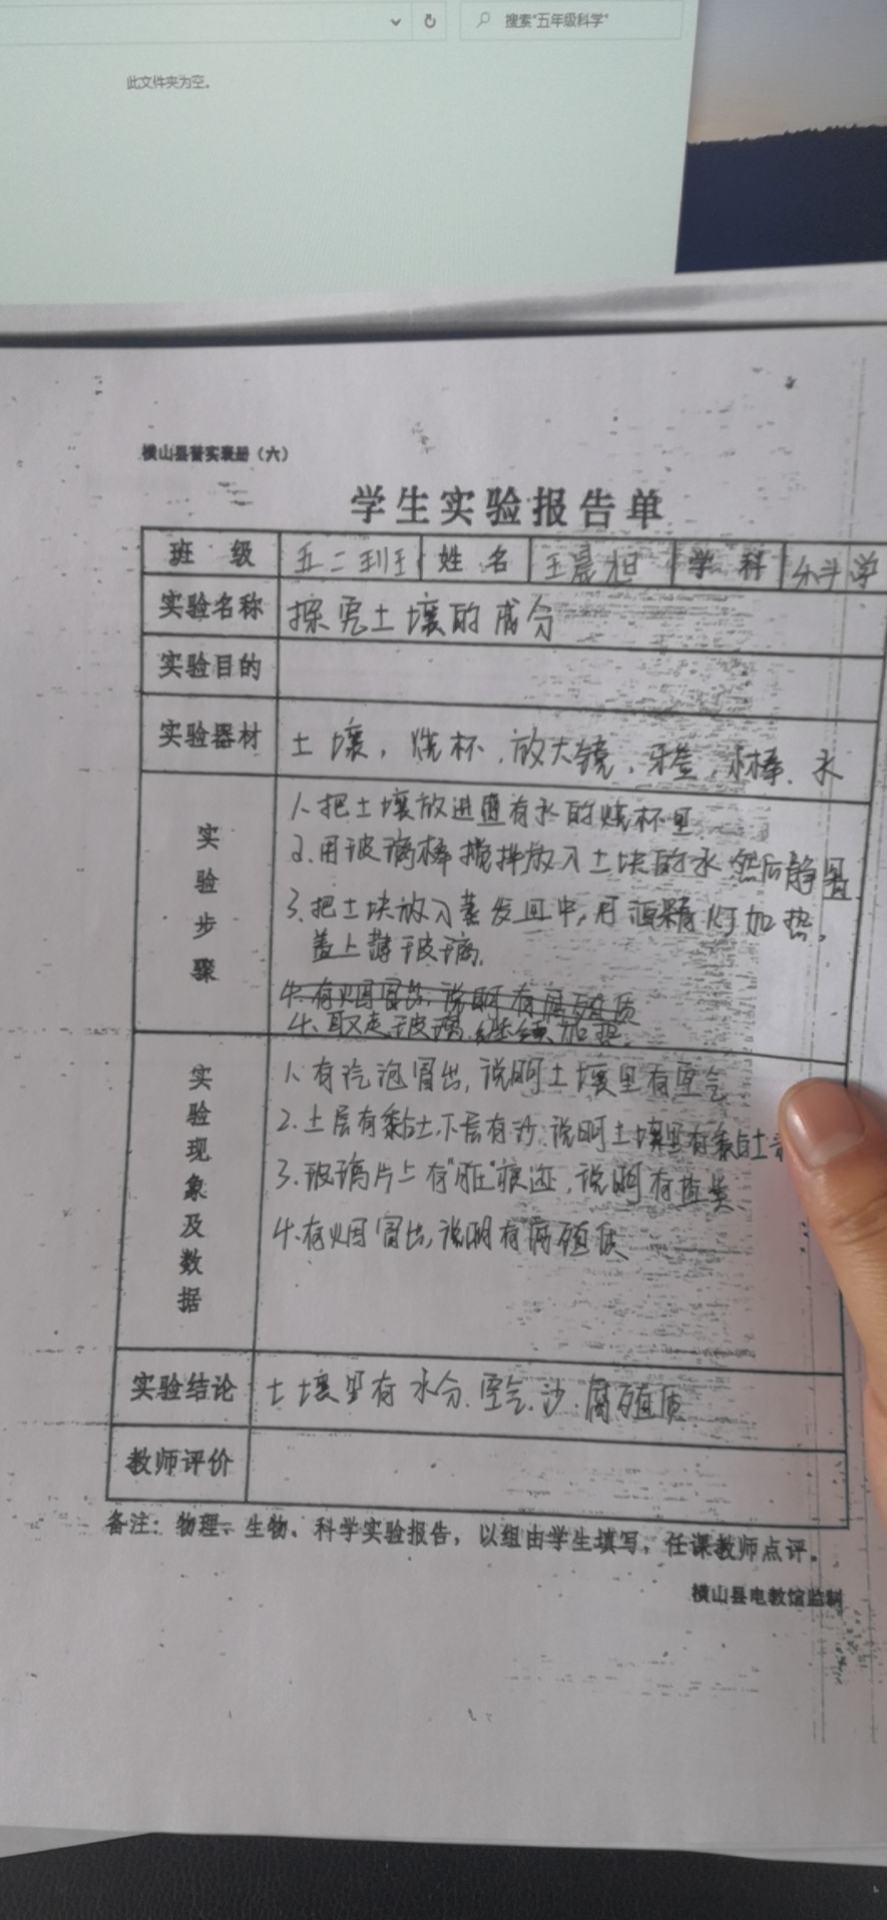 搜索"五年级科学"
此文件夹为空。
横山县普实表册（六）
学生实验报告单
班 级 五二班 姓 名 王晨旭 学 科 科学
实验名称 探究土壤的成分
实验目的
实验器材 土壤，烧杯，放大镜，牙签，小棒、水
实验步骤
1、把土壤放进有水的烧杯里
2、用玻璃棒搅拌放入土块的水 然后静置
3、把土块放入蒸发皿中，用酒精灯加热，
盖上薄玻璃。
4、有烟冒出，说明有腐殖质
4、取走玻璃，继续加热。
实验现象及数据
1、有汽泡冒出，说明土壤里有空气
2、上层有黏土，下层有沙，说明土壤里有黏土
3、玻璃片上有"斑"痕迹，说明有盐类
4、有烟冒出，说明有腐殖质
实验结论 土壤里有水分、空气、沙、腐殖质
教师评价
备注：物理、生物、科学实验报告，以组由学生填写，任课教师点评。
横山县电教馆监制